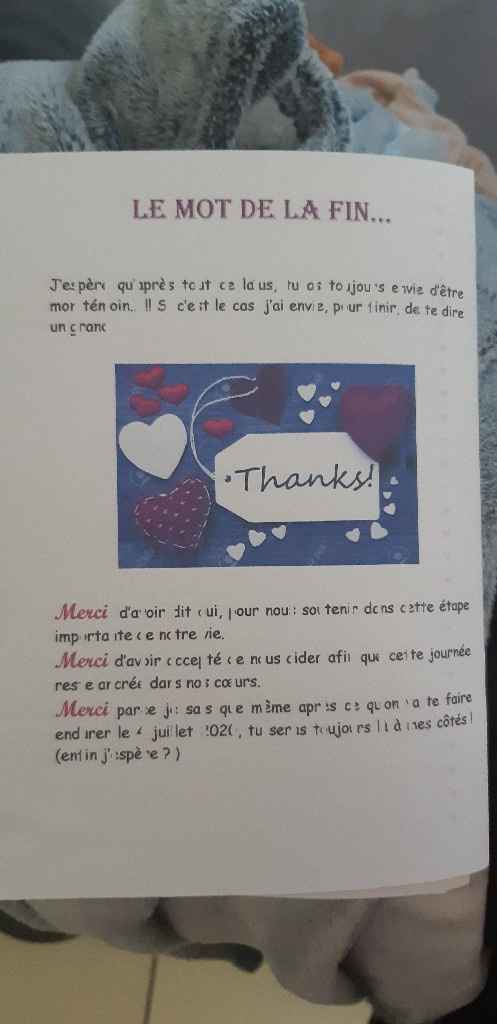 LE MOT DE LA FIN...
J'espère qu'après tout ce laïus, tu as toujours envie d'être
mon témoin.. !! Si c'est le cas j'ai envie, pour finir, de te dire
un grand
Thanks!
Merci d'avoir dit oui, pour nous soutenir dans cette étape
importante de notre vie.
Merci d'avoir accepté de nous aider afin que cette journée
reste ancrée dans nos cœurs.
Merci parce je sais que même après ce qu'on va te faire
endurer le juillet 2020, tu seras toujours là à mes côtés !
(enfin j'espère ? )